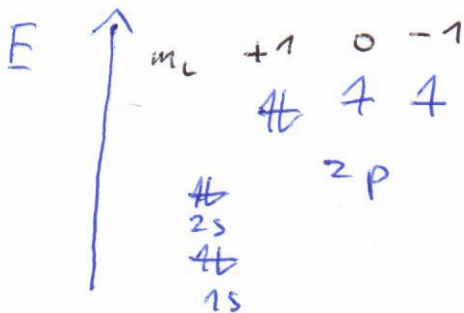 E mL +1 0 -1
2p
2s
1s